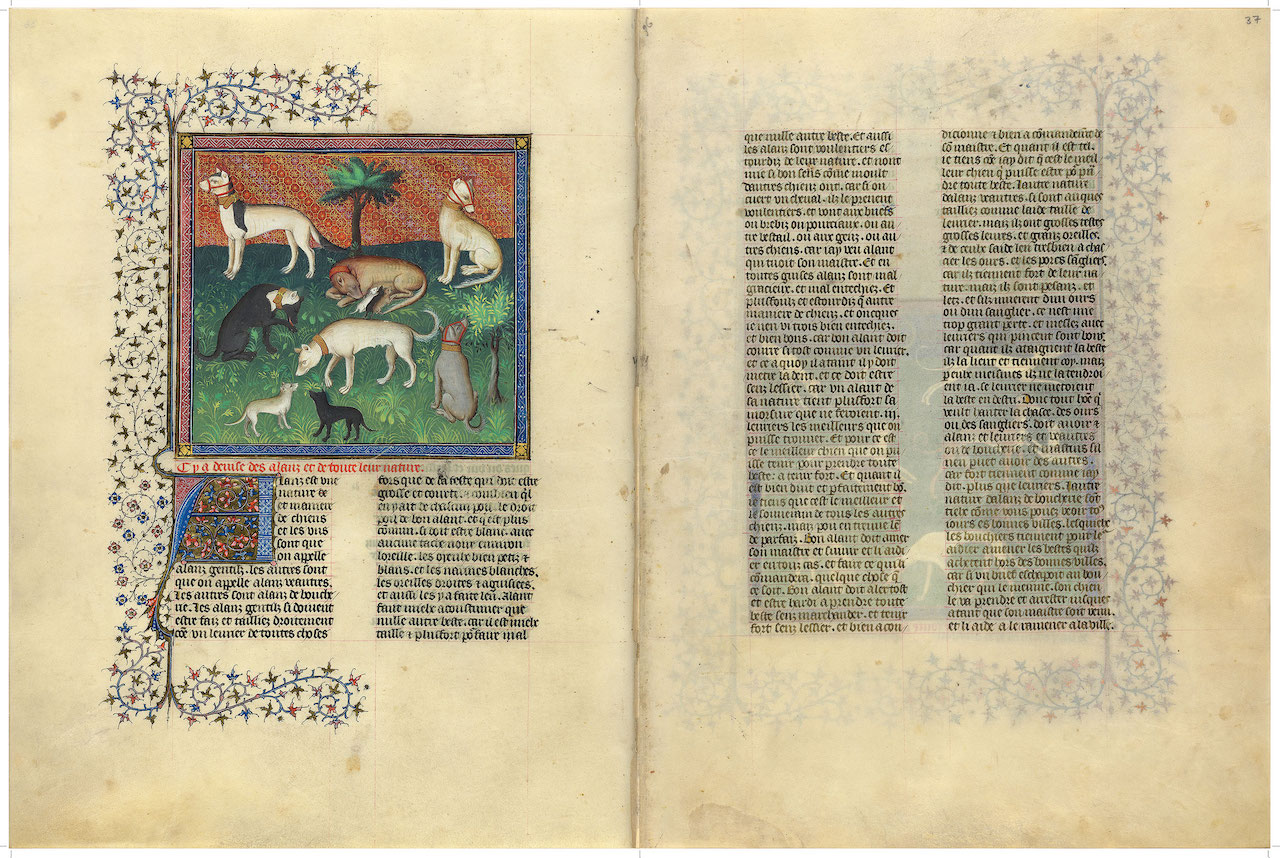 37
Cy a devise des alanz et de toute leur nature.
Alanz est une
nature et
maniere
de chiens
et les uns
sont que
on appelle
alanz gentilz. les autres sont
que on appelle alanz veautres.
Les autres sont alanz de bouche
rie. Les alanz gentilz si doivent
estre faiz et tailliez droitement
cõe un levrier de toutes choses
fors que de la teste qui doit estre
grosse et courte. et combien qͥl
en y ait de chascun poil. le droit
poil de bon alant. et qui est plus
cõmun. si doit estre blanc. avec
aucune tache noire environ
loreille. les oyeulz bien petiz et
blans. et les narines blanches.
les oreilles droites et aguisiees.
et aussi les y a faite len. Alant
faut mielz acoustumer que
nulle autre beste. car il est mielz
taillie et plus fort põ faire mal
que nulle autre beste. Et aussi
les alanz sont voulentiers es
tourdiz de leur nature. et nont
mie si bon sens cõme moult
dautres chiens ont. car si on
cuert un cheval. ilz le prenent
voulentiers. et vont aux buefs
ou brebiz ou pourciaux. ou au
tre bestail. ou aux genz. ou au
tres chiens. car jay veu alant
qui tuoit son maistre. Et en
toutes guises alanz sont mal
gracieux. et mal entechiez. Et
plus foulz et estourdiz q̃ autre
maniere de chiens. et onques
je nen vi trois bien entechiez.
et bien bons. car bon alant doit
courre si tost comme un levrier.
et ce a quoy il ataint il y doit
metre la dent. et ce doit estre
senz lessier. car un alant de
sa nature tient plus fort sa
morsure que ne feroient .iij.
levriers les meilleurs que on
puisse trouver. Et pour ce est
ce le meilleur chien que on pu
isse tenir pour prendre toute
beste. et tenir fort. Et quant il
est bien duit et parfaitement bõ.
je tiens que cest le meilleur et
le souverain de tous les autres
chiens. mais pou en treuve len
de parfaiz. Bon alant doit amer
son maistre et suivir et li aidi
er en touz cas. et faire ce quil li
comandera. quelque chose q̃
ce soit. Bon alant doit aler tost
et estre hardi a prendre toute
beste senz marchander. et tenir
fort senz lessier. et bien a con
dicionne et bien a cõmandemẽt de
sõ maistre. Et quant il est tel.
je tiens cõe jay dit q̃ cest le meil
leur chien q̃ puisse estre põ pñ
dre toute beste. Lautre nature
dalanz veautres. si sont auques
tailliez comme laide taille de
levrier. mais ilz ont grosses testes
grosses levres. et granz oreilles.
et de ceulz saide len tresbien a chas
cier les ours. et les porcs sãgliers.
car ilz tiennent fort de leur na
ture. mais ilz sont pesanz. et
lez. et silz muerent dun ours
ou dun sanglier. ce nest mie
trop grant perte. et meslez avec
levriers qui pincent sont bons.
car quant ilz ataignent la beste
ilz la lient et tiennent coy. mais
p̲ eulz meismes ilz ne la tendroi
ent ja. se levrier ne metoient
la beste en destri. Donc tout hõe q̃
veult hanter la chasce. des ours
ou des sangliers. doit avoir et
alanz et levriers et veautres
ou de boucherie. et mastins sil
nen puet avoir des autres.
car fort tiennent comme jay
dit. plus que levriers. Lautre
nature dalanz de boucherie sõt
tielz cõme vous poez veoir to
jours es bonnes villes. lesquielz
les bouchiers tiennent pour le
aidier amener les bestes quilz
achetent hors des bonnes villes.
car si un buef eschapoit au bou
chier qui le menne. son chien
le va prendre et arrester jusques
a tant que son maistre soit venu.
et li aide a le ramener a la ville.